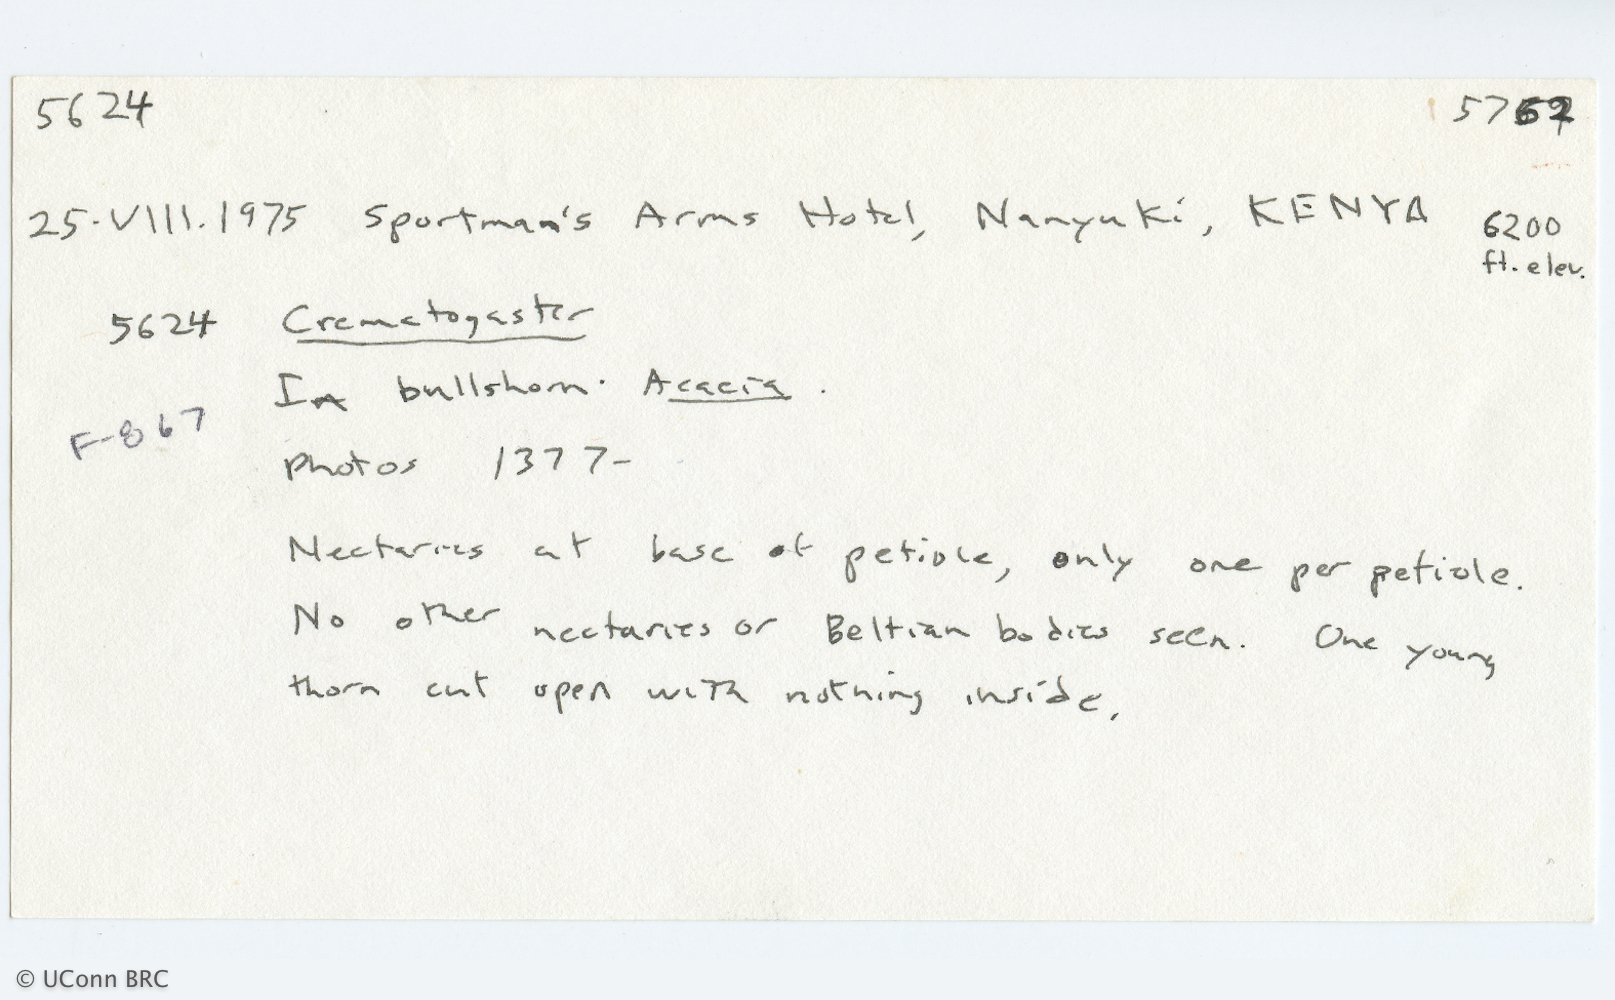 5624
25.VIII.1975 Sportman's Arms Hotel, Nanyuki, KENYA 6200
ft. elev.
5624 Crematogaster
In bullshorn Acacia.
F-867
photos 1377-
Nectaries at base of petiole, only one per petiole.
No other nectaries or Beltian bodies seen. One young
thorn cut open with nothing inside.
© UConn BRC